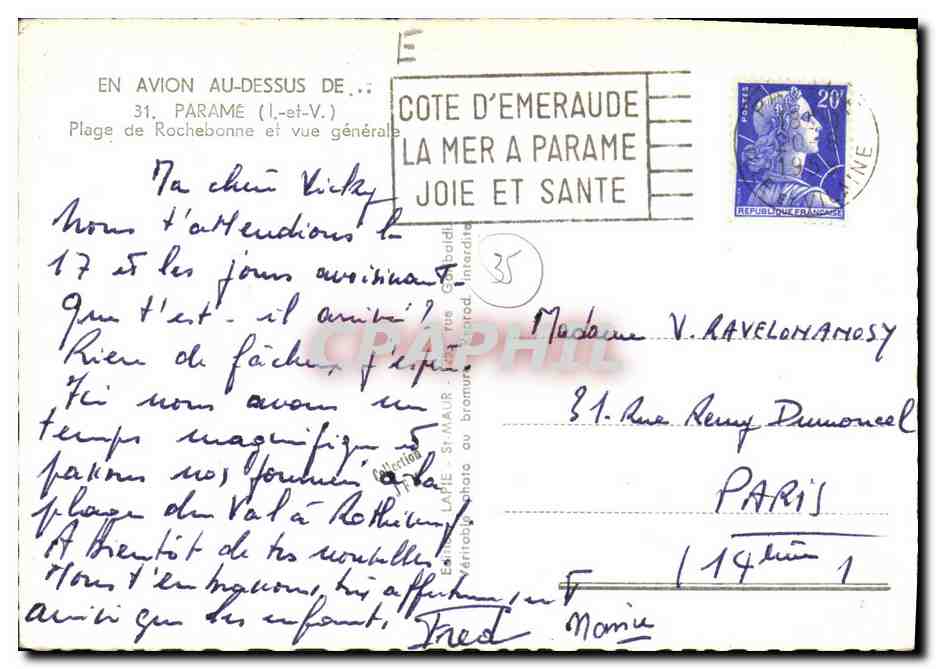 EN AVION AU-DESSUS DE...
31. PARAMÉ (I.-et-V.)
Plage de Rochebonne et vue générale
COTE D'EMERAUDE
LA MER A PARAME
JOIE ET SANTE
POSTES
20F
REPUBLIQUE FRANÇAISE
35
Ma chère Vicky
Nous t'attendions le
17 et les jours avoisinant.
Que t'est-il arrivé?
Rien de fâcheux j'espère.
Ici nous avons un
temps magnifique et
passons nos journées à la
plage du Val à Rothéneuf.
A bientôt de tes nouvelles.
Nous t'embrassons, très affectueusement
ainsi que les enfants.
Fred
Madame V. RAVELOMANOSY
31. Rue Remy Dumoncel
PARIS
(14ème)
Collection
LAPIE - St-MAUR
rue Garibaldi
Véritable photo au bromure
Reprod. interdite
CPAPHIL